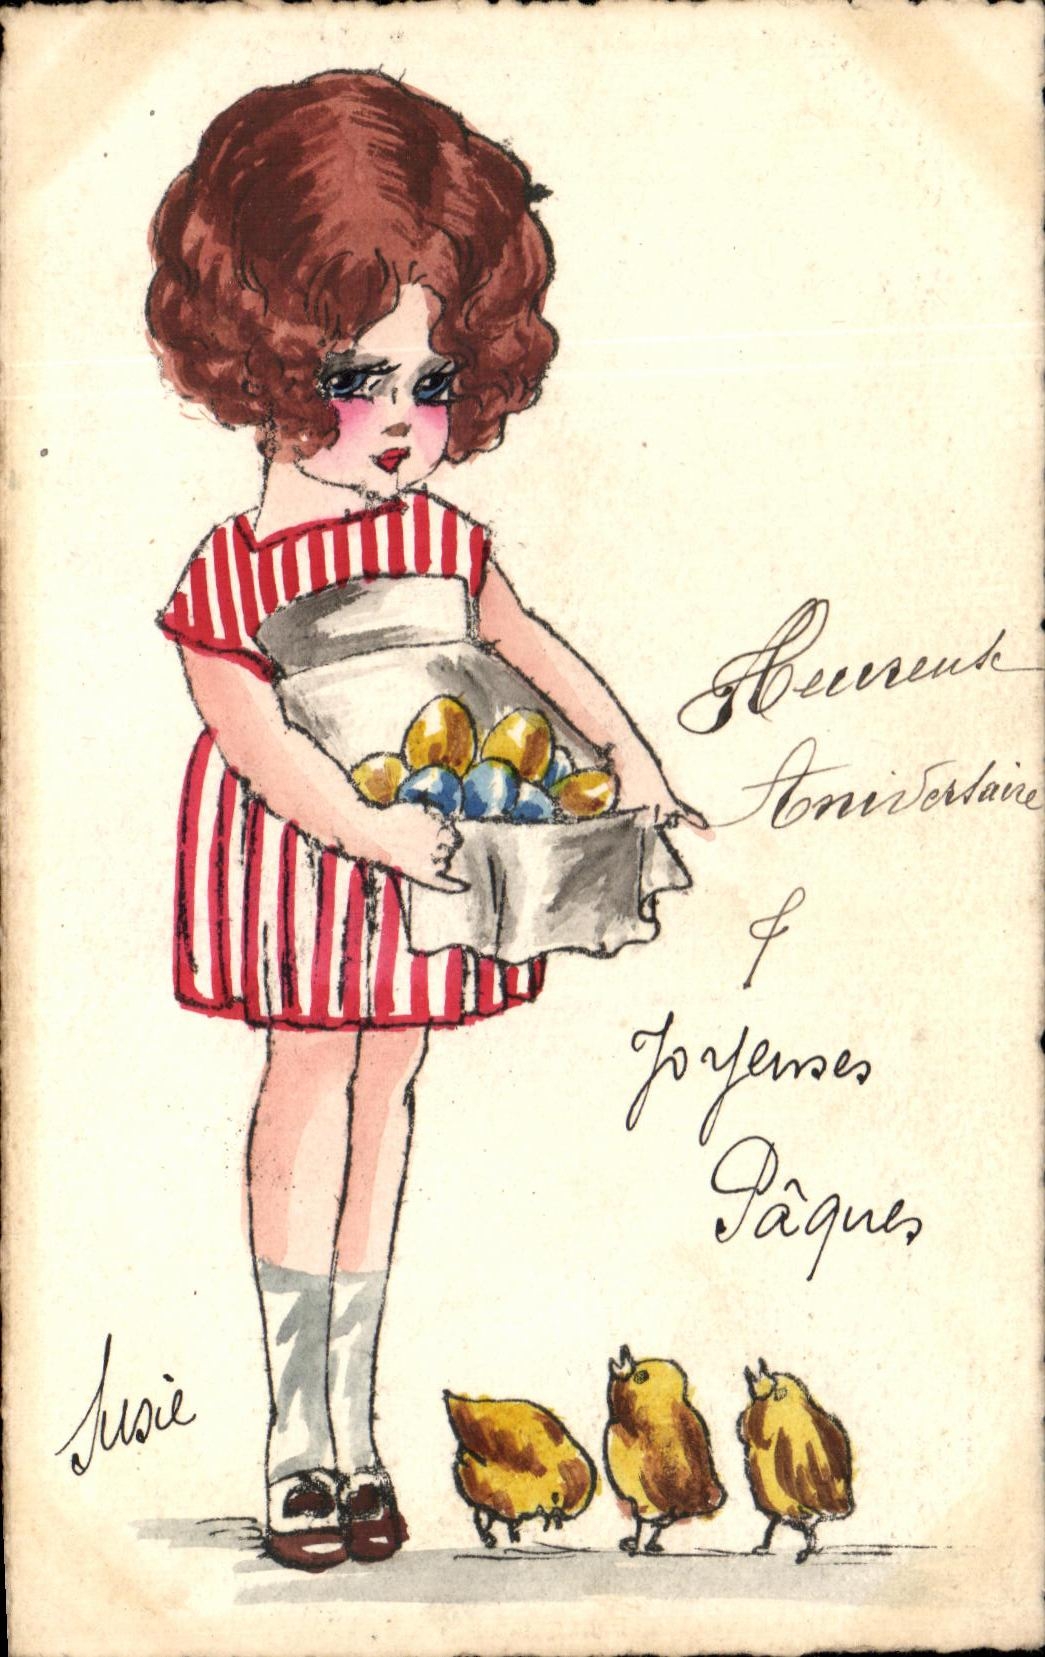 Heureux
Aniversaire
&
Joyeuses
Pâques
Susie